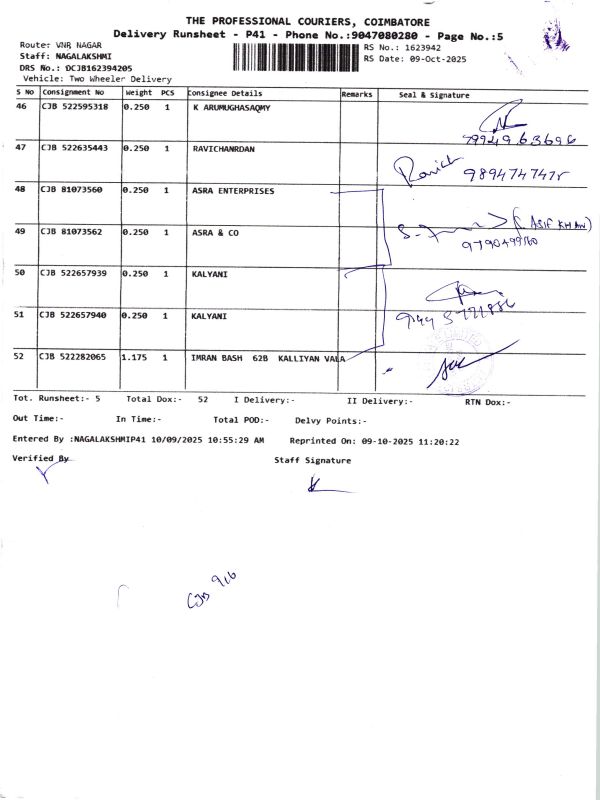 THE PROFESSIONAL COURIERS, COIMBATORE
Delivery Runsheet - P41 - Phone No.:9047080280 - Page No.:5
Route: VNR NAGAR
Staff: NAGALAKSHMI
DRS No.: DCJB162394205
Vehicle: Two Wheeler Delivery
RS No.: 1623942
RS Date: 09-Oct-2025
S No Consignment No Weight PCS Consignee Details Remarks Seal & Signature
46 CJB 522595318 0.250 1 K ARUMUGHASAQMY
47 CJB 522635443 0.250 1 RAVICHANRDAN
48 CJB 81073560 0.250 1 ASRA ENTERPRISES
49 CJB 81073562 0.250 1 ASRA & CO
(S. ASIF KHAN)
50 CJB 522657939 0.250 1 KALYANI
51 CJB 522657940 0.250 1 KALYANI
52 CJB 522282065 1.175 1 IMRAN BASH 62B KALLIYAN VALA
Tot. Runsheet:- 5 Total Dox:- 52 I Delivery:- II Delivery:- RTN Dox:-
Out Time:- In Time:- Total POD:- Delvy Points:-
Entered By :NAGALAKSHMIP41 10/09/2025 10:55:29 AM Reprinted On: 09-10-2025 11:20:22
Verified By Staff Signature
CJB 9/6